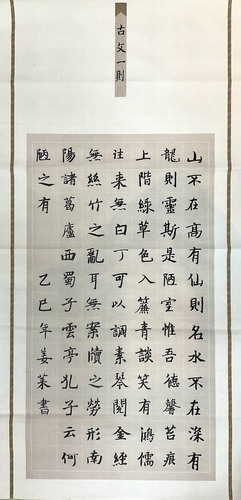 古文一則
山不在高有仙則名水不在深有
龍則靈斯是陋室惟吾德馨苔痕
上階綠草色入簾青談笑有鴻儒
往来無白丁可以調素琴閱金經
無絲竹之亂耳無案牘之勞形南
陽諸葛廬西蜀子雲亭孔子云何
陋之有 乙巳年姜書